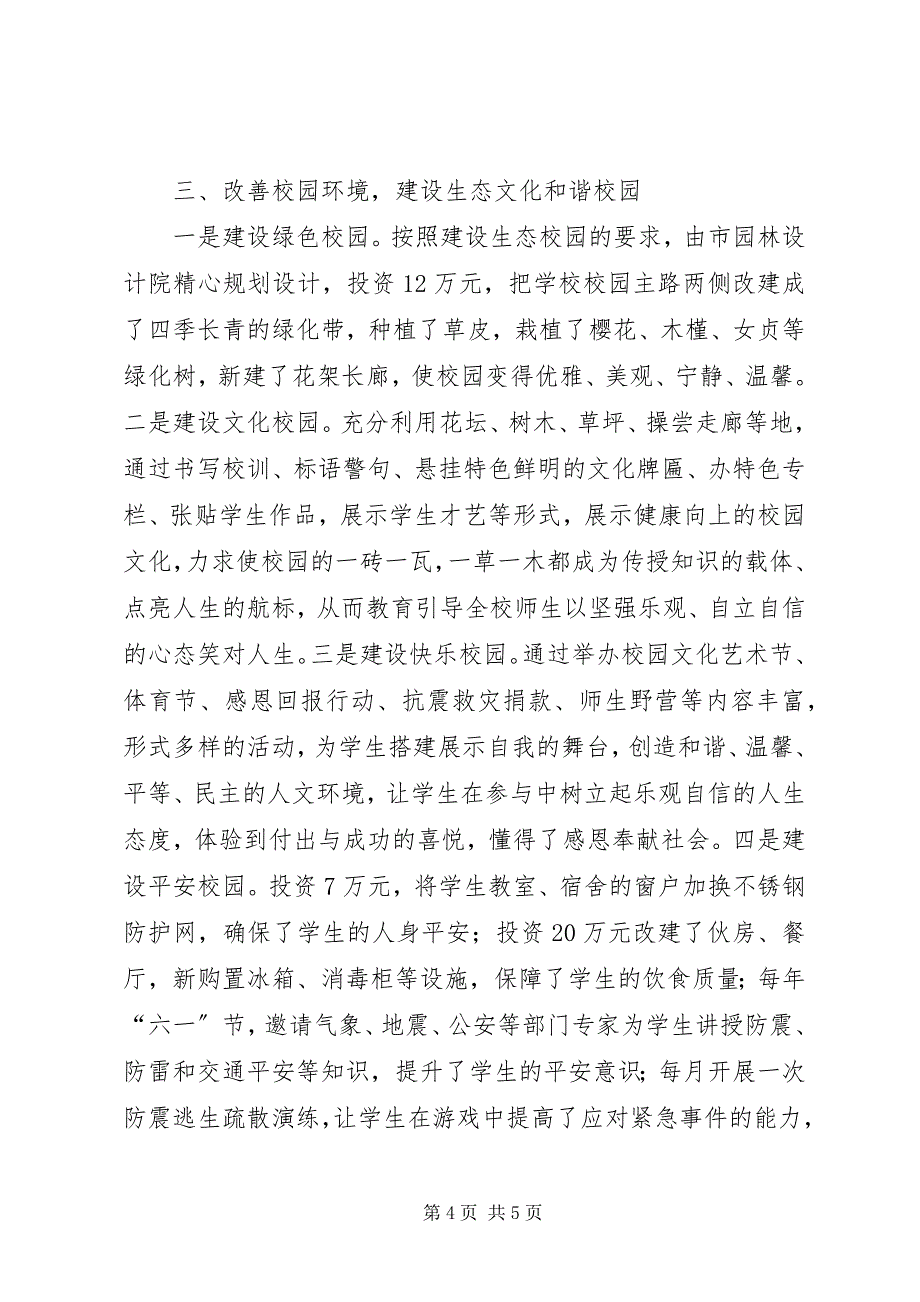 三、改善校园环境，建设生态文化和谐校园
一是建设绿色校园。按照建设生态校园的要求，由市园林设
计院精心规划设计，投资 12 万元，把学校校园主路两侧改建成
了四季长青的绿化带，种植了草皮，栽植了樱花、木槿、女贞等
绿化树，新建了花架长廊，使校园变得优雅、美观、宁静、温馨。
二是建设文化校园。充分利用花坛、树木、草坪、操尝走廊等地，
通过书写校训、标语警句、悬挂特色鲜明的文化牌匾、办特色专
栏、张贴学生作品，展示学生才艺等形式，展示健康向上的校园
文化，力求使校园的一砖一瓦，一草一木都成为传授知识的载体、
点亮人生的航标，从而教育引导全校师生以坚强乐观、自立自信
的心态笑对人生。三是建设快乐校园。通过举办校园文化艺术节、
体育节、感恩回报行动、抗震救灾捐款、师生野营等内容丰富，
形式多样的活动，为学生搭建展示自我的舞台，创造和谐、温馨、
平等、民主的人文环境，让学生在参与中树立起乐观自信的人生
态度，体验到付出与成功的喜悦，懂得了感恩奉献社会。四是建
设平安校园。投资 7 万元，将学生教室、宿舍的窗户加换不锈钢
防护网，确保了学生的人身平安；投资 20 万元改建了伙房、餐
厅，新购置冰箱、消毒柜等设施，保障了学生的饮食质量；每年
“六一〞节，邀请气象、地震、公安等部门专家为学生讲授防震、
防雷和交通平安等知识，提升了学生的平安意识；每月开展一次
防震逃生疏散演练，让学生在游戏中提高了应对紧急事件的能力，
第 4 页 共 5 页